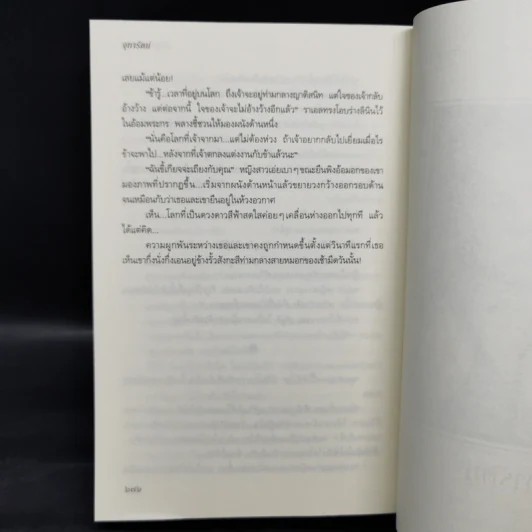 จุฑารัตน์
เลยแม้แต่น้อย!
“ข้ารู้...เวลาที่อยู่บนโลก ถึงเจ้าจะอยู่ท่ามกลางญาติสนิท แต่ใจของเจ้ากลับ
อ้างว้าง แต่ต่อจากนี้ ใจของเจ้าจะไม่อ้างว้างอีกแล้ว” ราเอลทรงโอบร่างลินินไว้
ในอ้อมพระกร พลางชี้ชวนให้มองผนังด้านหนึ่ง
“นั่นคือโลกที่เจ้าจากมา...แต่ไม่ต้องห่วง ถ้าเจ้าอยากกลับไปเยี่ยมเมื่อไร
ข้าจะพาไป...หลังจากที่เจ้าตกลงแต่งงานกับข้าแล้วนะ”
“ฉันขี้เกียจจะเถียงกับคุณ” หญิงสาวเอ่ยเบาๆ ขณะยืนพิงอ้อมอกของเขา
มองภาพที่ปรากฏขึ้น...เริ่มจากผนังด้านหน้าแล้วขยายวงกว้างออกรอบด้าน
จนเหมือนกับว่าเธอและเขายืนอยู่ในห้วงอวกาศ
เห็น...โลกที่เป็นดวงดาวสีฟ้าสดใสค่อยๆ เคลื่อนห่างออกไปทุกที แล้ว
ได้แต่คิด...
ความผูกพันระหว่างเธอและเขาคงถูกกำหนดขึ้นตั้งแต่วินาทีแรกที่เธอ
เห็นเขากึ่งนั่งกึ่งนอนอยู่ข้างรั้วสังกะสีท่ามกลางสายหมอกของเช้ามืดวันนั้น!